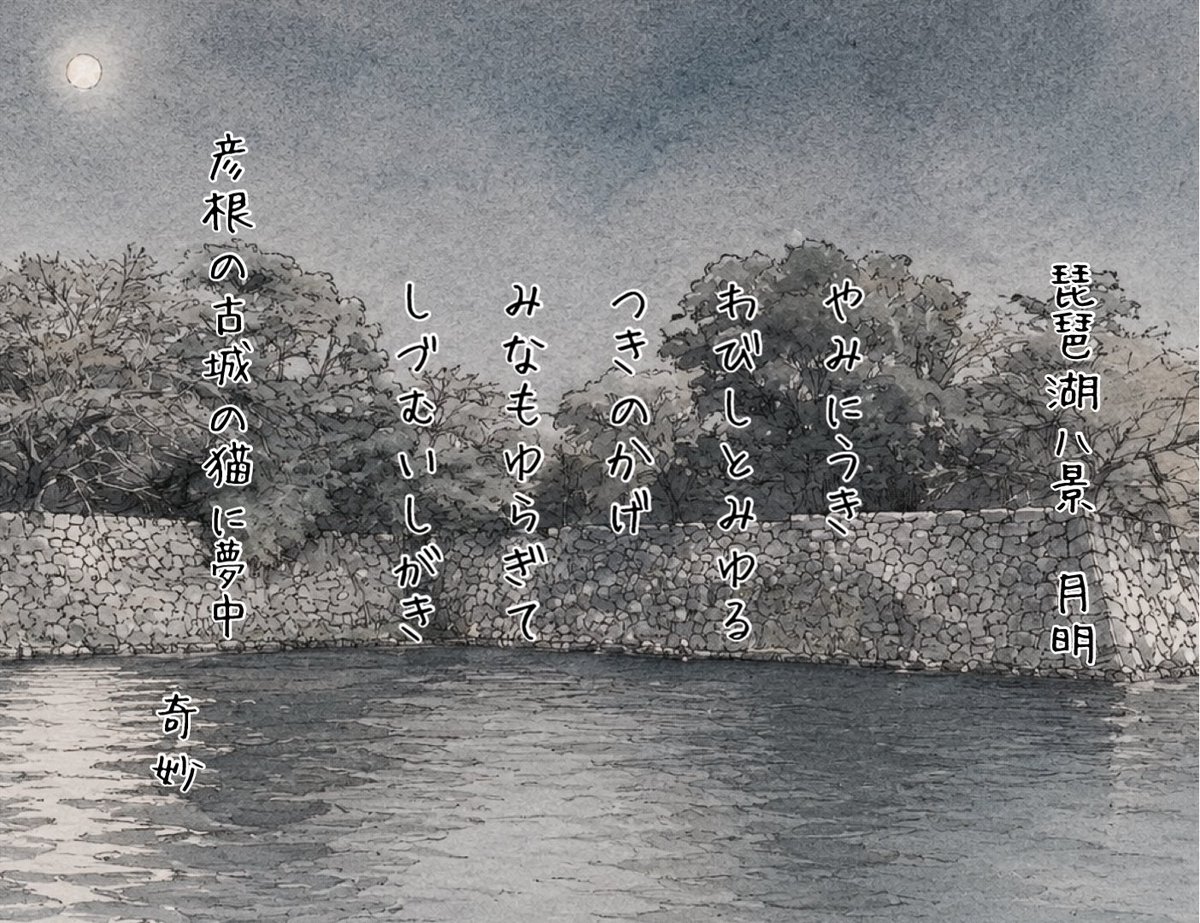 琵琶湖八景　月明
やみにうき
わびしとみゆる
つきのかげ
みなもゆらぎて
しづむいしがき
彦根の古城の猫に夢中
奇妙